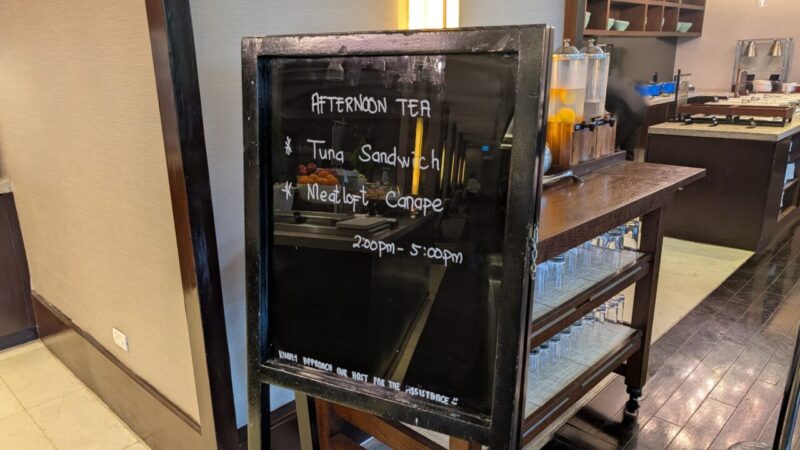 AFTERNOON TEA
* Tuna Sandwich
* Meatloft Canape
2:00pm - 5:00pm
KINDLY APPROACH OUR HOST FOR THE ASSISTANCE :)